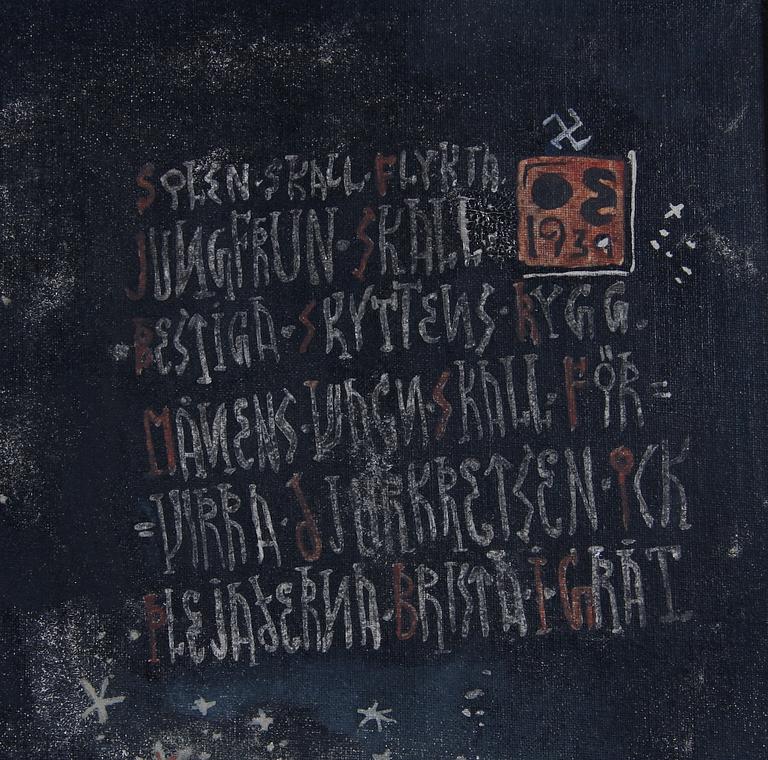 SOLEN·SKALL·FLYKTA.
OE
1939
JUNGFRUN·SKALL·
BESTIGA·SKYTTENS·RYGG.
MÅNENS·VAGN·SKALL·FÖR=
=VIRRA·DJURKRETSEN·OCK
PLEJADERNA·BRISTA·I·GRÅT